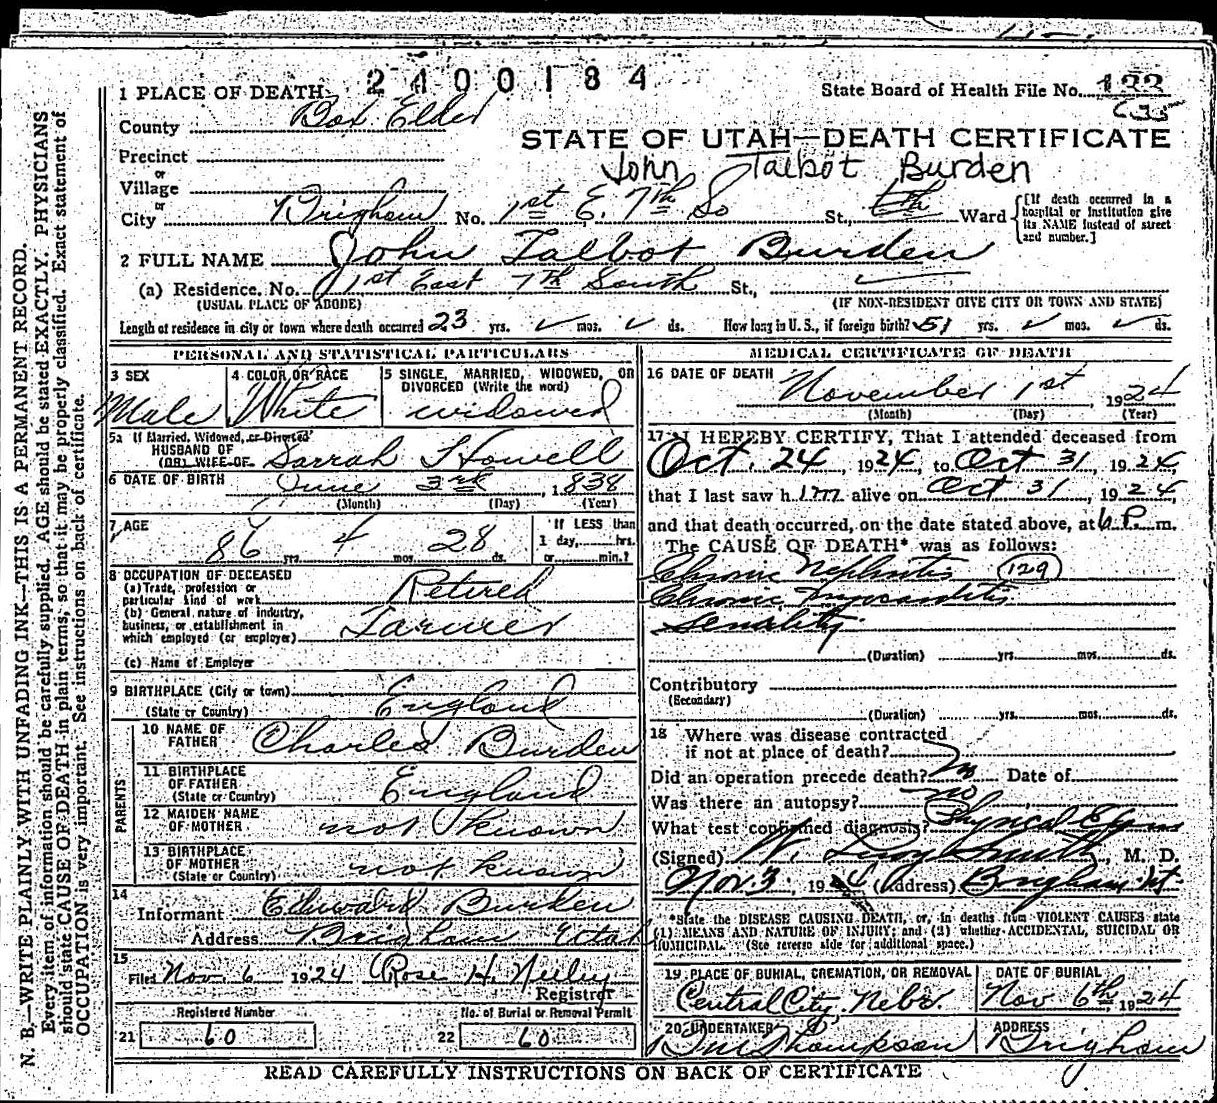 2400184
1 PLACE OF DEATH
State Board of Health File No. 133
635
County Box Elder
STATE OF UTAH—DEATH CERTIFICATE
Precinct
or
John Talbot Burden
Village
or
City Brigham No. 1st E. 7th So St., 6th Ward
[If death occurred in a hospital or institution give its NAME instead of street and number.]
2 FULL NAME John Talbot Burden
(a) Residence. No. 1st East 7th South St.,
(USUAL PLACE OF ABODE) (IF NON-RESIDENT GIVE CITY OR TOWN AND STATE)
Length of residence in city or town where death occurred 23 yrs. mos. ds. How long in U.S., if foreign birth? 51 yrs. mos. ds.
PERSONAL AND STATISTICAL PARTICULARS
3 SEX
Male
4 COLOR OR RACE
White
5 SINGLE, MARRIED, WIDOWED, OR
DIVORCED (Write the word)
widowed
5a If Married, Widowed, or Divorced
HUSBAND OF
(OR) WIFE OF Sarrah T Howell
6 DATE OF BIRTH June 3rd, 1838
(Month) (Day) (Year)
7 AGE
86 yrs. 4 mos. 28 ds.
If LESS than
1 day, hrs.
or min.?
8 OCCUPATION OF DECEASED
(a) Trade, profession or
particular kind of work Retired
(b) General nature of industry,
business, or establishment in
which employed (or employer) Farmer
(c) Name of Employer
9 BIRTHPLACE (City or town)
(State or Country) England
PARENTS
10 NAME OF
FATHER Charles Burden
11 BIRTHPLACE
OF FATHER
(State or Country) England
12 MAIDEN NAME
OF MOTHER not known
13 BIRTHPLACE
OF MOTHER
(State or Country) not known
14
Informant Edward Burden
Address Brigham Utah
15
Filed Nov 6 1924 Rose H. Neeley
Registrar
Registered Number
21 60
No. of Burial or Removal Permit
22 60
MEDICAL CERTIFICATE OF DEATH
16 DATE OF DEATH
November 1st 1924
(Month) (Day) (Year)
17 I HEREBY CERTIFY, That I attended deceased from
Oct. 24, 1924, to Oct 31, 1924,
that I last saw him alive on Oct 31, 1924
and that death occurred, on the date stated above, at P. m.
The CAUSE OF DEATH* was as follows:
Chronic Nephritis (129)
Chronic Myocarditis
Senility
(Duration) yrs. mos. ds.
Contributory
(Secondary)
(Duration) yrs. mos. ds.
18 Where was disease contracted
if not at place of death?
Did an operation precede death? no Date of
Was there an autopsy? no
What test confirmed diagnosis? Physical
(Signed) W. Smith, M. D.
Nov. 3, 1924 (Address) Brigham Ut.
*State the DISEASE CAUSING DEATH, or, in deaths from VIOLENT CAUSES state
(1) MEANS AND NATURE OF INJURY; and (2) whether ACCIDENTAL, SUICIDAL OR
HOMICIDAL. (See reverse side for additional space.)
19 PLACE OF BURIAL, CREMATION, OR REMOVAL
Central City, Nebr.
DATE OF BURIAL
Nov 6th, 1924
20 UNDERTAKER
Thompson
ADDRESS
Brigham
READ CAREFULLY INSTRUCTIONS ON BACK OF CERTIFICATE
N. B.—WRITE PLAINLY WITH UNFADING INK—THIS IS A PERMANENT RECORD.
Every item of information should be carefully supplied. AGE should be stated EXACTLY. PHYSICIANS
should state CAUSE OF DEATH in plain terms, so that it may be properly classified. Exact statement of
OCCUPATION is very important. See instructions on back of certificate.